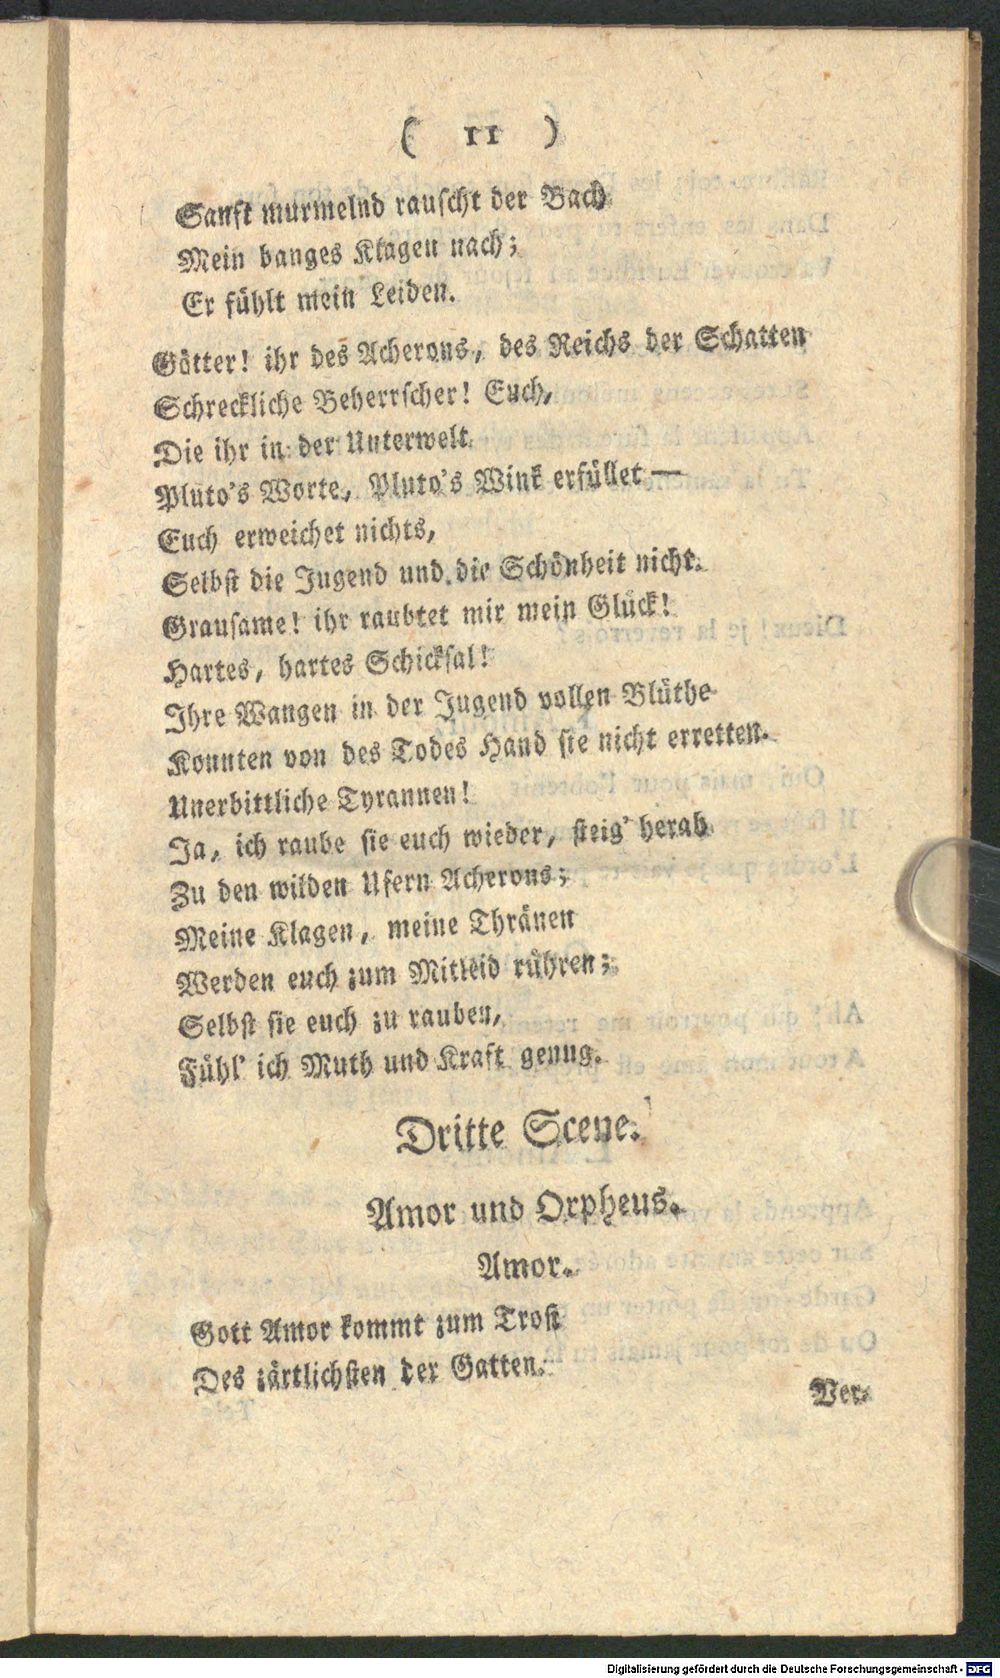 ( 11 )
Sanft murmelnd rauscht der Bach
Mein banges Klagen nach;
Er fühlt mein Leiden.
Götter! ihr des Acherons, des Reichs der Schatten
Schreckliche Beherrscher! Euch,
Die ihr in der Unterwelt
Pluto's Worte, Pluto's Wink erfüllet —
Euch erweichet nichts,
Selbst die Jugend und die Schönheit nicht.
Grausame! ihr raubtet mir mein Glück!
Hartes, hartes Schicksal!
Ihre Wangen in der Jugend vollen Blüthe
Konnten von des Todes Hand sie nicht erretten.
Unerbittliche Tyrannen!
Ja, ich raube sie euch wieder, steig' herab
Zu den wilden Ufern Acherons;
Meine Klagen, meine Thränen
Werden euch zum Mitleid rühren;
Selbst sie euch zu rauben,
Fühl' ich Muth und Kraft genug.
Dritte Scene.
Amor und Orpheus.
Amor.
Gott Amor kommt zum Trost
Des zärtlichsten der Gatten.
Ver-
Digitalisierung gefördert durch die Deutsche Forschungsgemeinschaft - DFG